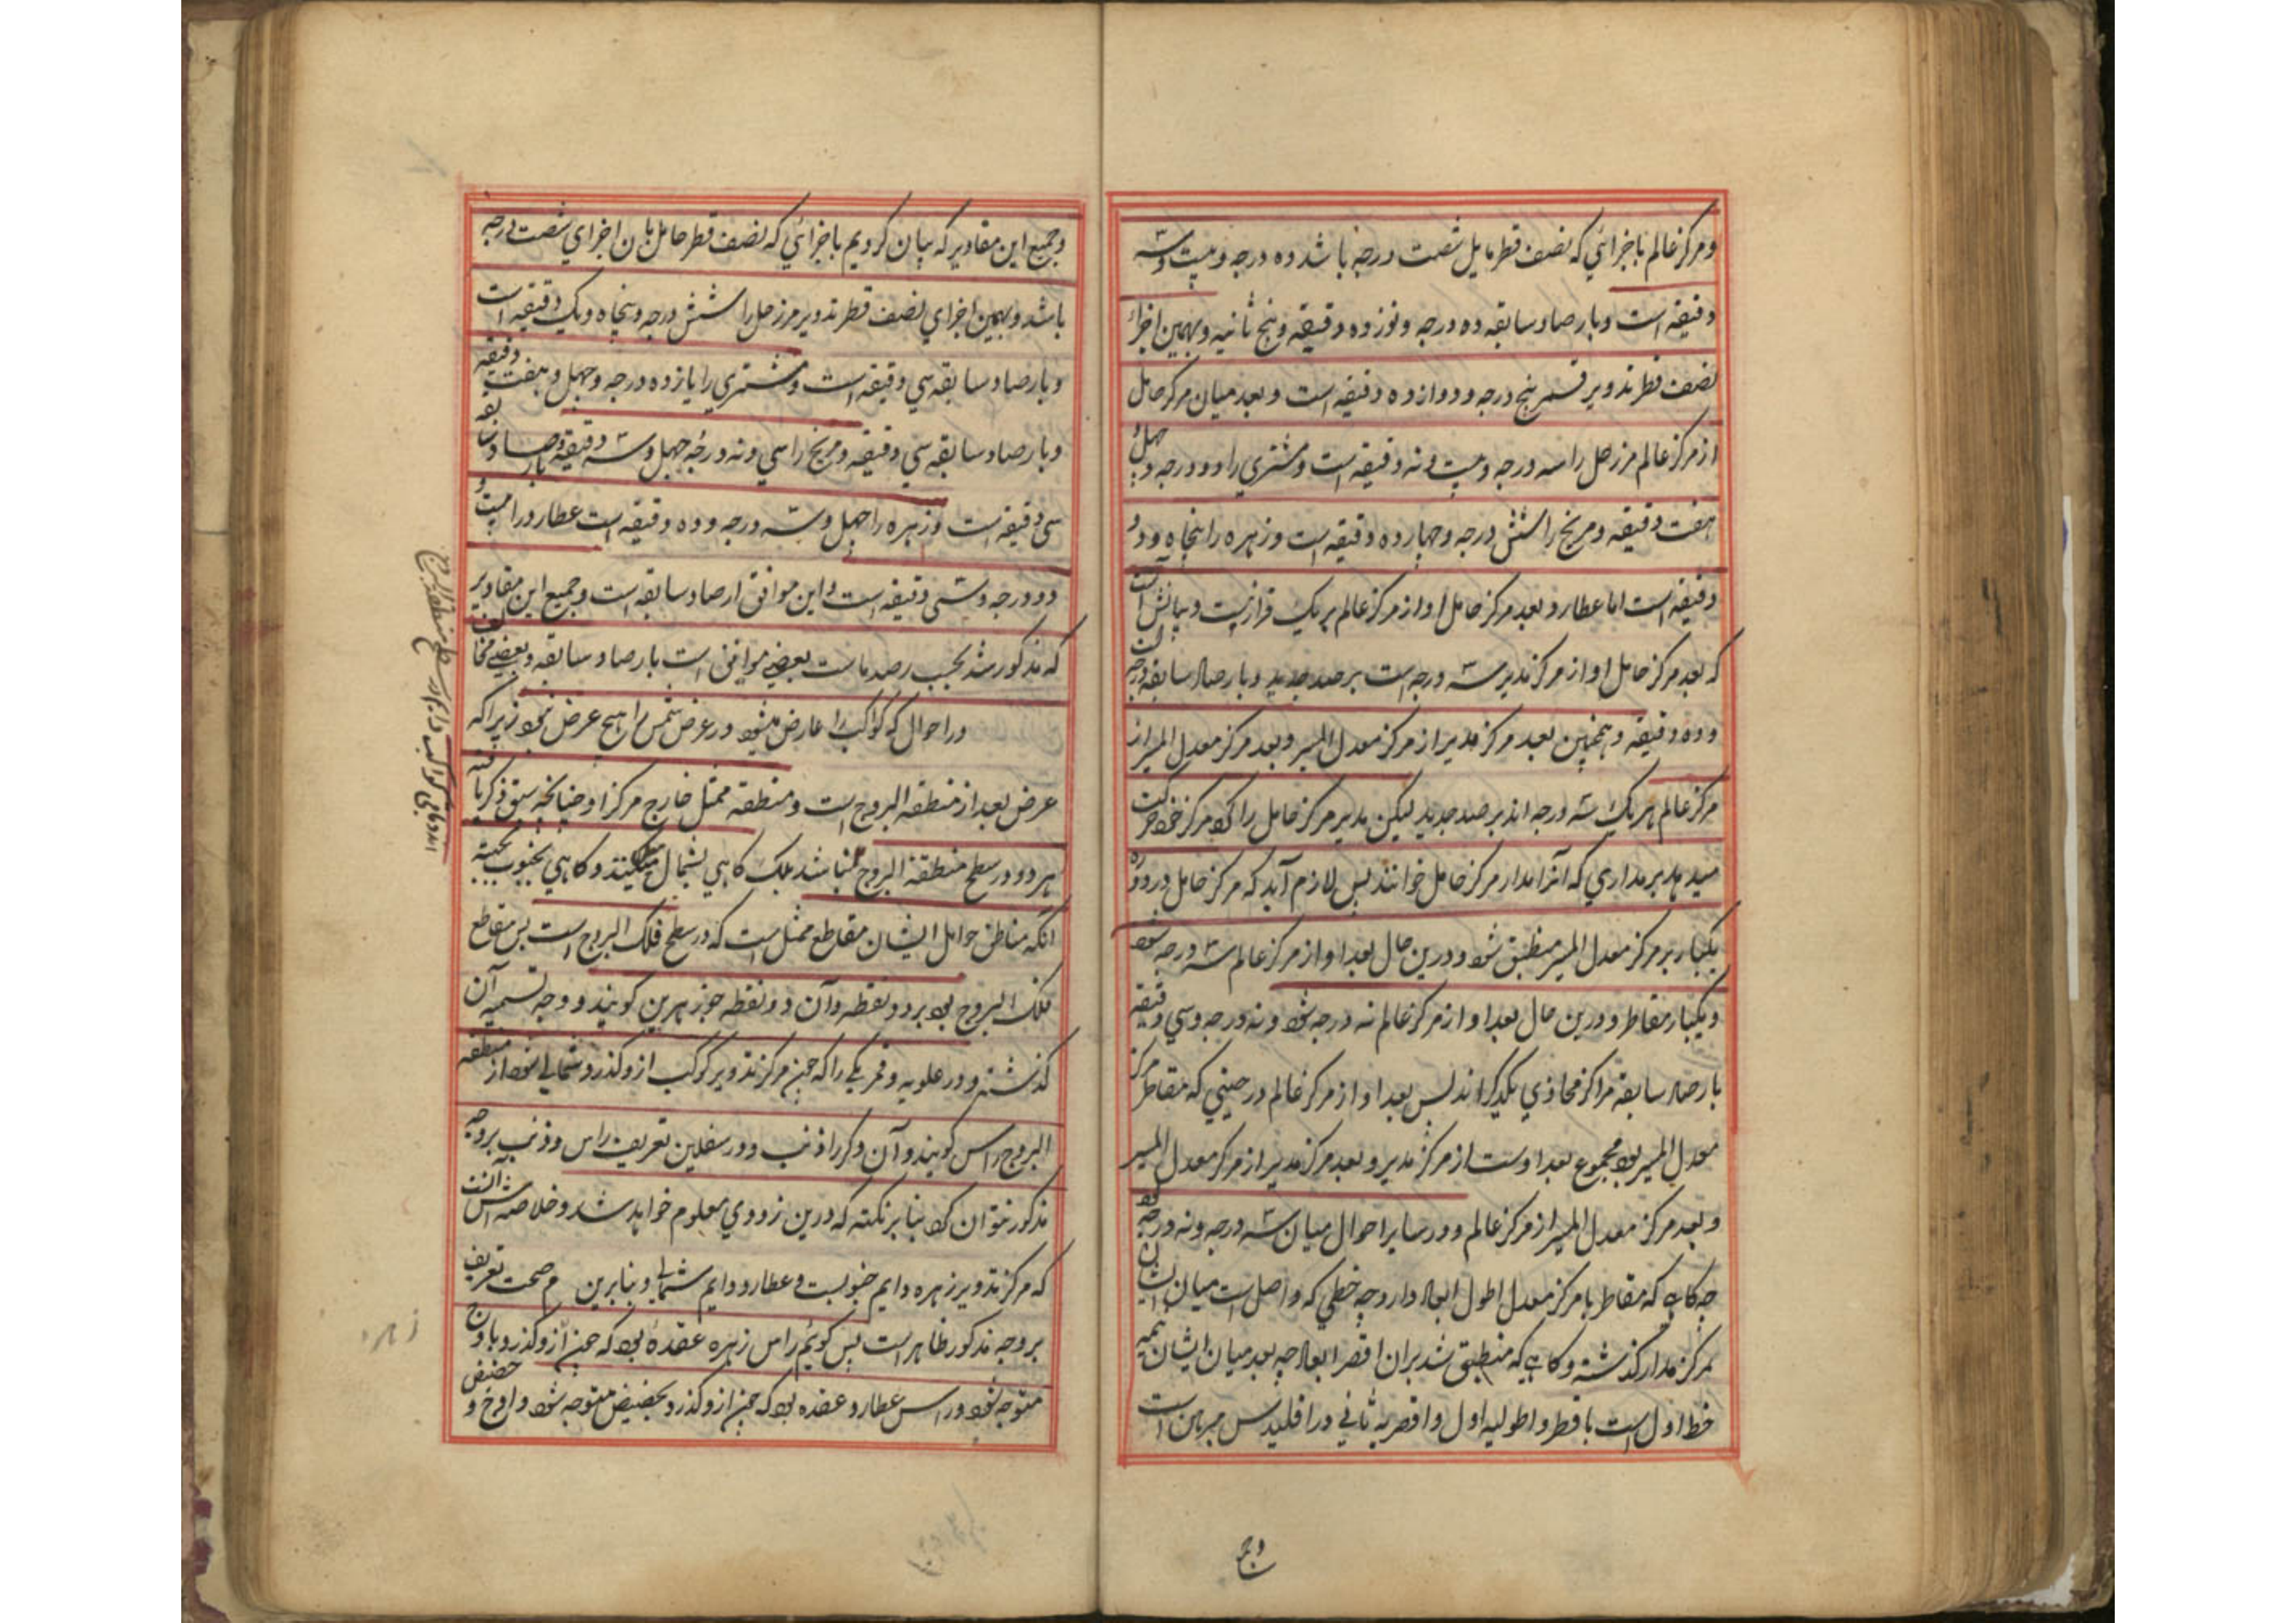 و مرکز عالم باجزائي که نصف قطر مایل شصت درجه باشد ده درجه و بیست و سه
دقیقه است و بارصاد سابقه ده درجه و نوزده دقیقه و پنج ثانیه و بهمین اجزاء
نصف قطر تدویر قمر پنج درجه و دوازده دقیقه است و بعد میان مرکز حامل
از مرکز عالم مر زحل را سه درجه و بیست و نه دقیقه است و مشتري را دو درجه و چهل و
هفت دقیقه و مریخ را شش درجه و چهارده دقیقه است و زهره را پنجاه و دو
دقیقه است اما عطارد بعد مرکز حامل او از مرکز عالم بریک قرار نیست و بیانش آنست
که بعد مرکز حامل او از مرکز مدیر سه درجه است برصد جدید و بارصاد سابقه درجه
و ده دقیقه و همچنین بعد مرکز مدیر از مرکز معدل المسیر و بعد مرکز معدل المسیر از
مرکز عالم هر یک سه درجه اند برصد جدید لیکن مدیر مرکز حامل را که مرکز خود حرکت
میدهد بر مداري که آنرا مدار مرکز حامل خوانند پس لازم آید که مرکز حامل در دوره
یکبار بر مرکز معدل المسیر منطبق شود و درین حال بعد او از مرکز عالم سه درجه شود
و یکبار مقاطر و درین حال بعد او از مرکز عالم نه درجه شود و نه درجه و سي دقیقه
بارصاد سابقه مراکز محاذي یکدیگر اند پس بعد او از مرکز عالم در حیني که مقاطر مرکز
معدل المسیر بود مجموع بعد اوست از مرکز مدیر و بعد مرکز مدیر از مرکز معدل المسیر
و بعد مرکز معدل المسیر از مرکز عالم و در سایر احوال میان سه درجه و نه درجه بود
چه گاهي که مقاطر با مرکز معدل اطول ابعاد دارد چه خطي که واصل است میان ایشان
بمرکز مدار گذشته و گاهي که منطبق شد بران اقصر ابعاد چه بعد میان ایشان نیمه
خط اول است باقطر و اطولیه اول و اقصریه ثاني در اقلیدس مبرهن است
و جمیع
و جمیع این مقادیر که بیان کردیم باجزائي که نصف قطر حامل بان اجزاي شصت درجه
باشد و بهمین اجزاي نصف قطر تدویر مر زحل را شش درجه و پنجاه و یک دقیقه است
و بارصاد سابقه سي دقیقه است و مشتري را یازده درجه و چهل و هفت دقیقه
و بارصاد سابقه سي دقیقه و مریخ را سي و نه درجه چهل و سه دقیقه و بارصاد سابقه
سي دقیقه است و زهره را چهل و سه درجه و ده دقیقه است عطارد را بیست و
دو درجه و سي دقیقه است و این موافق ارصاد سابقه است و جمیع این مقادیر
که مذکور شد بحسب رصد ماست بعضي موافق است بارصاد سابقه و بعضي مخالف
در احوال که کواکب را عارض میشود در عرض شمس را هیچ عرض نبود زیرا که
عرض بعد از منطقه البروج است و منطقه ممثل خارج مرکز او چنانچه سبق ذکر یافته
هر دو در سطح منطقة البروج نباشد بلک گاهي بشمال میکنند و گاهي بجنوب بجهته
آنکه مناطق حوامل ایشان مقاطع ممثل است که در سطح فلک البروج است پس مقاطع
فلک البروج بود بر دو نقطه و آن دو نقطه جوزهرین گویند و وجه تسمیه آن
گذشته و در علویه و قمر یکي را که چون مرکز تدویر کوکب ازو گذرد شمالي شود از منطقه
البروج راس گویند و آن دگر را ذنب و در سفلین تعریف راس و ذنب بروجه
مذکور نتوان کرد بنا بر نکته که درین زودي معلوم خواهد شد و خلاصه اش آنست
که مرکز تدویر زهره دایم جنوبیست و عطارد دایم شمالي و بنابرین عدم صحت تعریف
بروجه مذکور ظاهر است پس گوئیم راس زهره عقدهٔ بود که چون ازو گذرد باوج
متوجه شود و راس عطارد عقده بود که چون ازو گذرد بحضیض متوجه شود و اوج و حضیض
زهره